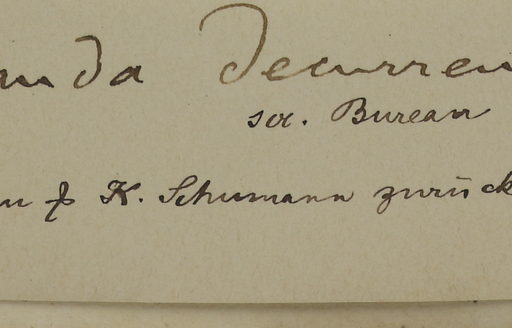 unda Decurren
Bureau
K. Schumann zurück